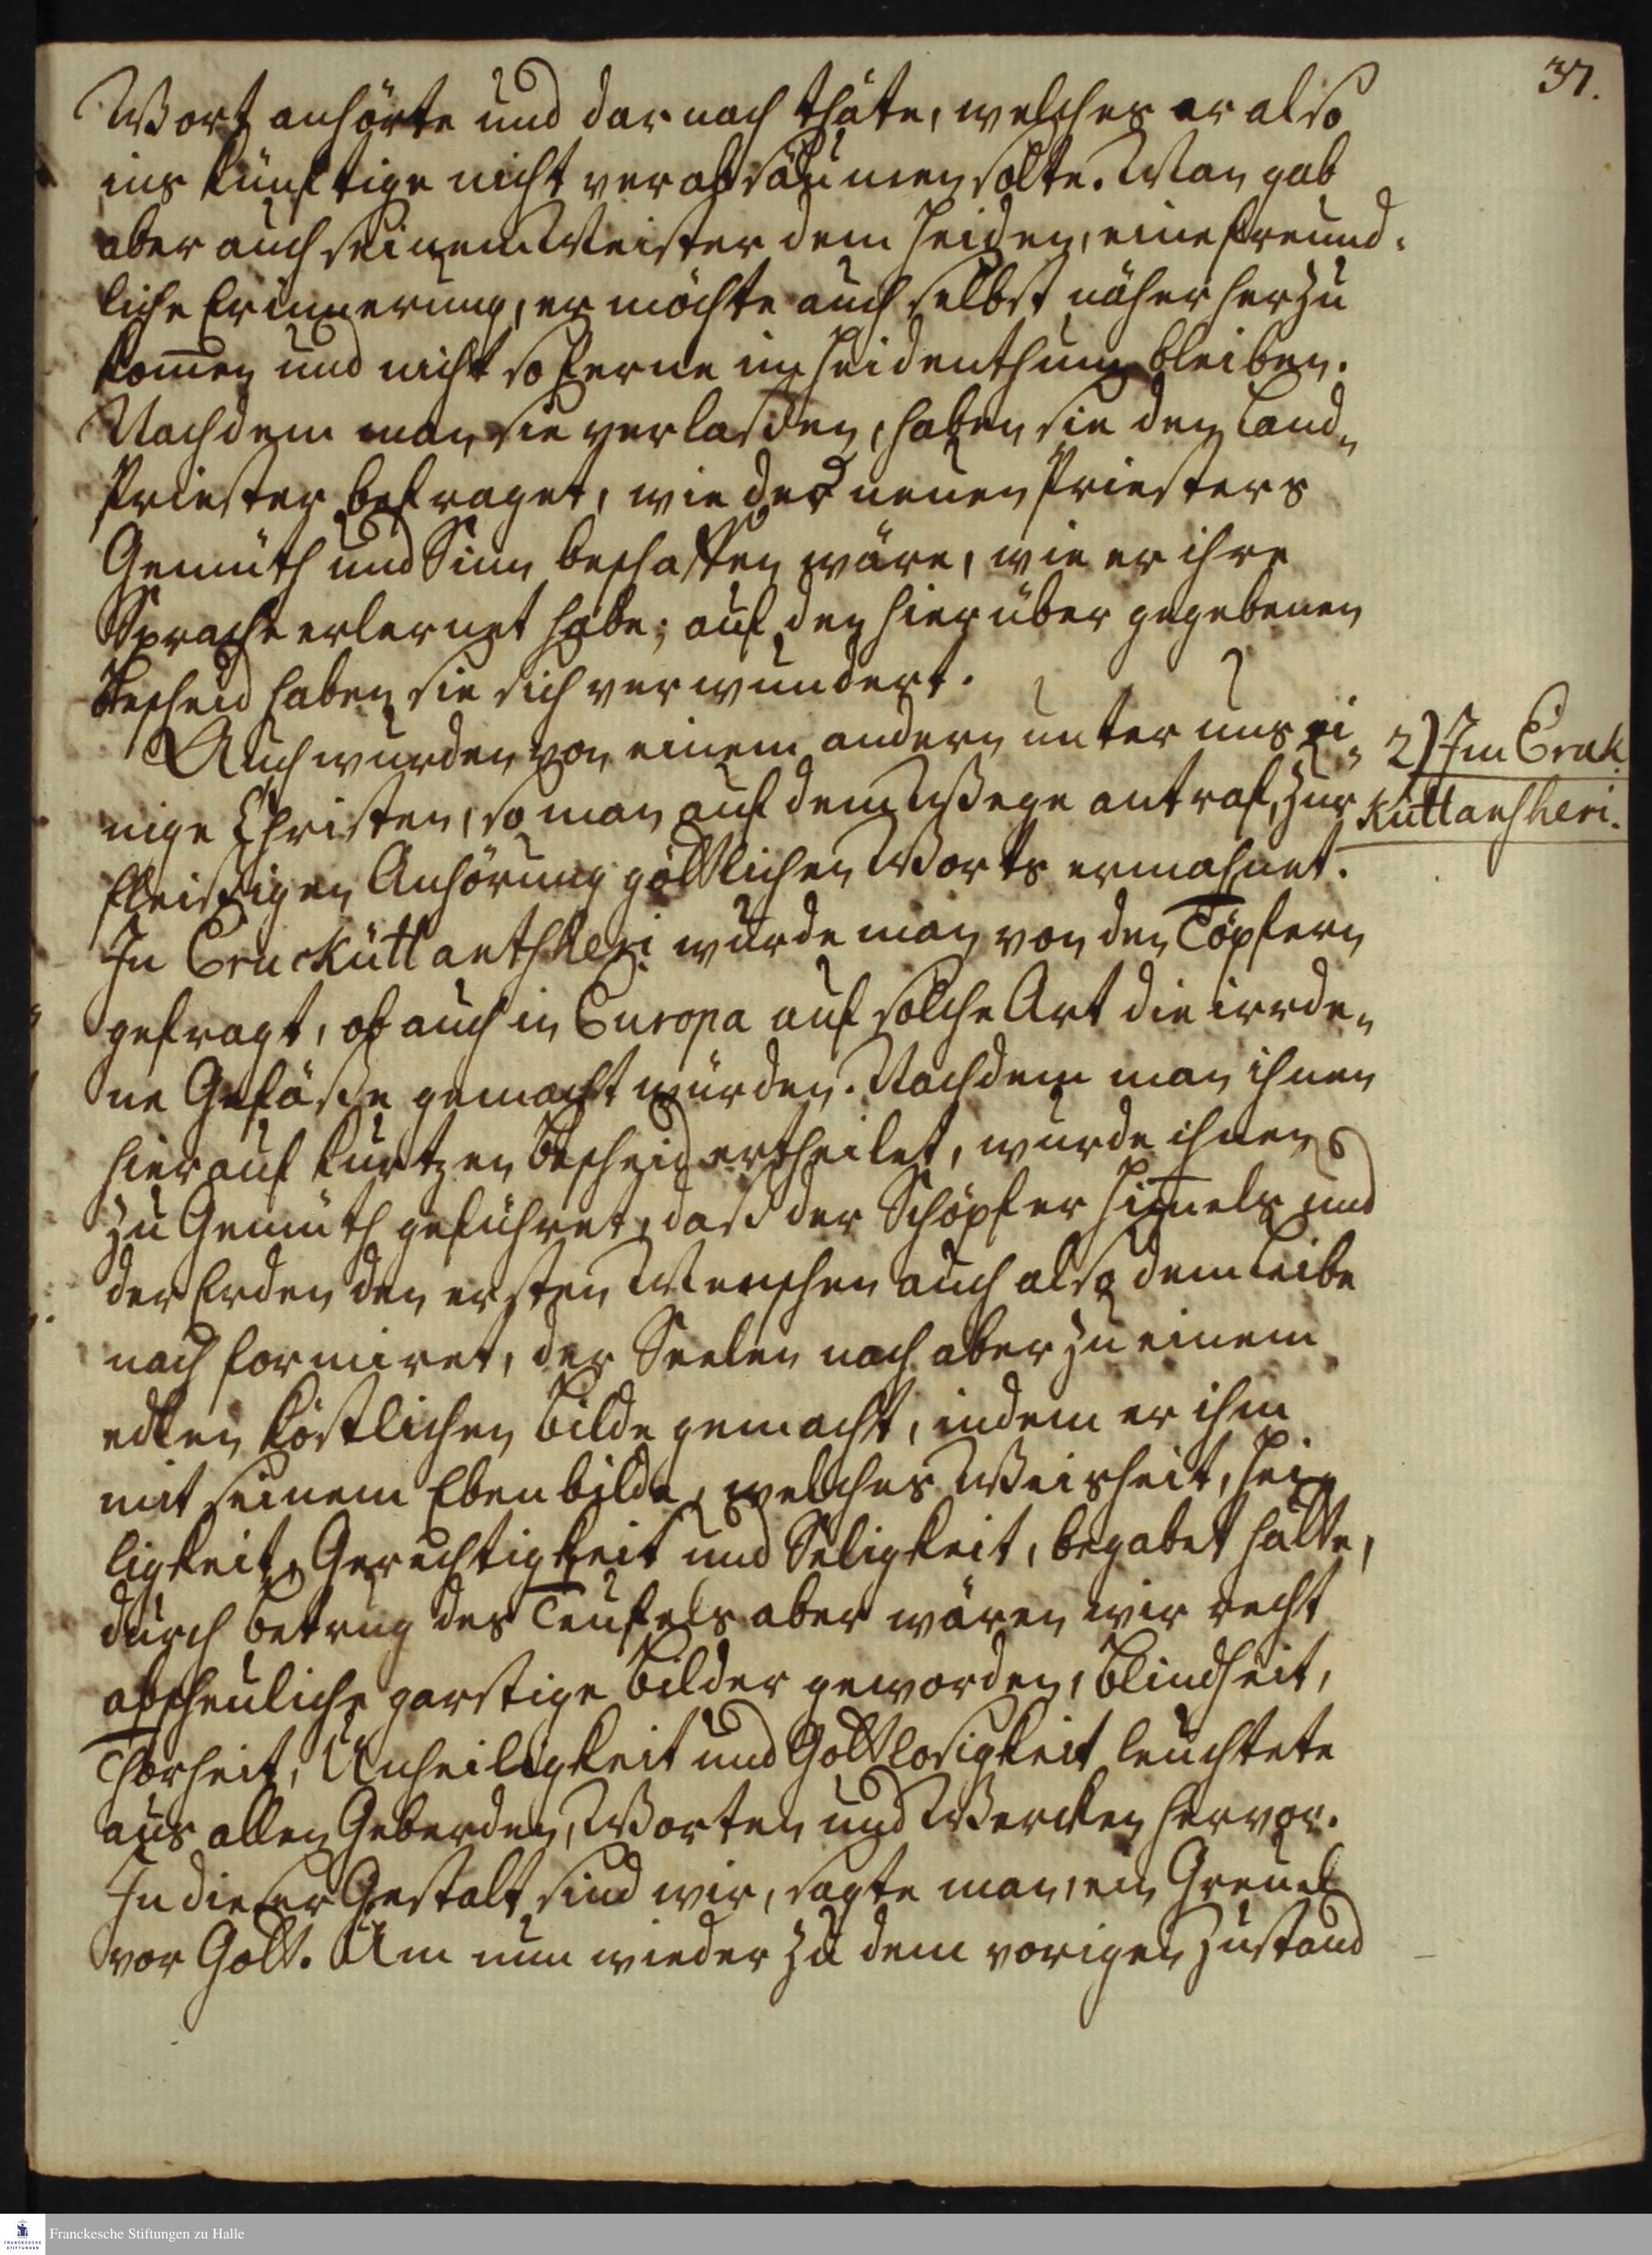 37.
Wort anhörte und darnach thäte, welches er also
ins künftige nicht verabsäumen solte. Man gab
aber auch seinem Meister dem Heiden, eine freund-
liche Erinnerung, er möchte auch selbst näher herzu
kom̄en und nicht so ferne im Heidenthum bleiben.
Nachdem man sie verlassen, haben sie den Land-
Priester befraget, wie des neuen Priesters
Gemüth und Sinn beschaffen wäre, wie er ihre
Sprache erlernet habe; auf den hierüber gegebenen
Bescheid haben sie sich verwundert.
Auch wurden von einem andern unter uns ei-
2) Im Eruk
nige Christen, so man auf dem Wege antraf, zur
kuttansheri.
fleißigen Anhörung göttlichen Worts ermahnet.
In Erucküttantsheri wurde man von den Töpfern
gefragt, ob auch in Europa auf solche Art die irrde-
ne Gefäße gemacht würden. Nachdem man ihnen
hierauf kurtzen Bescheid ertheilet, wurde ihnen
zu Gemüth geführet, daß der Schöpfer Him̄els und
der Erden den ersten Menschen auch also dem Leibe
nach formiret, der Seelen nach aber zu einem
edlen köstlichen Bilde gemacht, indem er ihm
mit seinem Ebenbilde, welches Weisheit, Hei-
ligkeit, Gerechtigkeit und Seligkeit, begabet hätte,
durch Betrug des Teufels aber wären wir recht
abscheuliche garstige Bilder geworden, Blindheit,
Thorheit, Unheiligkeit und Gottlosigkeit leuchtete
aus allen Geberden, Worten und Wercken hervor.
In dieser Gestalt sind wir, sagte man, ein Greuel
vor Gott. Um nun wieder zu dem vorigen Zustand
Franckesche Stiftungen zu Halle